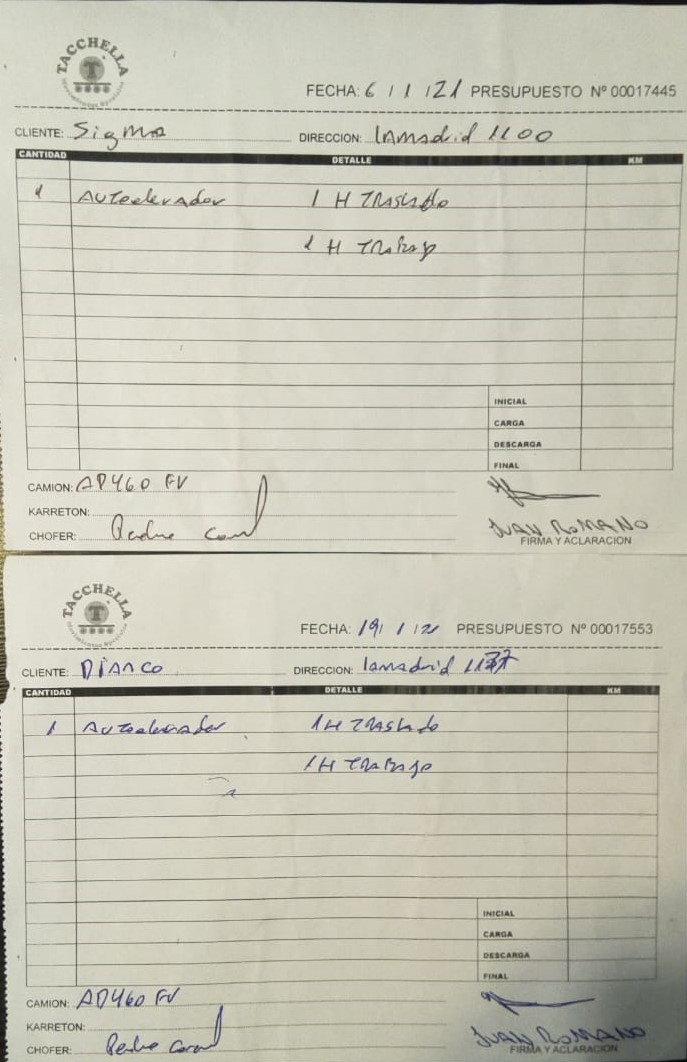 TACCHELLA
FECHA: 6 / 1 / 21 PRESUPUESTO Nº 00017445
CLIENTE: Sigma DIRECCION: lamadrid 1100
CANTIDAD DETALLE KM
1 Autoelevador 1 H TRASLADO
1 H TRABAJO
INICIAL
CARGA
DESCARGA
FINAL
CAMION: AD460 FV
KARRETON:
CHOFER:
JUAN ROMANO
FIRMA Y ACLARACION
TACCHELLA
FECHA: 19/ 1 /21 PRESUPUESTO Nº 00017553
CLIENTE: DIANCO DIRECCION: lamadrid
CANTIDAD DETALLE KM
1 Autoelevador 1H TRASLADO
1H TRABAJO
INICIAL
CARGA
DESCARGA
FINAL
CAMION: AD460 FV
KARRETON:
CHOFER:
JUAN ROMANO
FIRMA Y ACLARACION